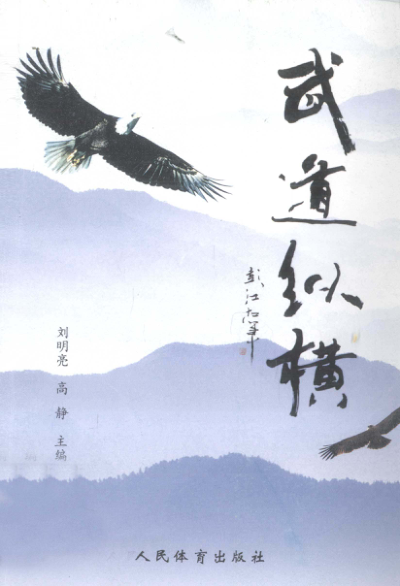 武道纵横
刘明亮 高静 主编
人民体育出版社